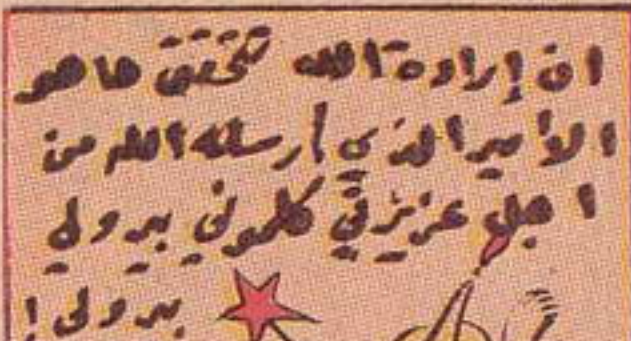 ان إرادة الله تتحقق ها هو
الأمير الذي أرسله الله من
اجل عزيزتي كلموني بيدولي
بيدولي !